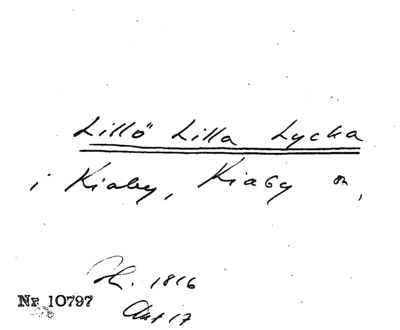 Lillö Lilla Lycka
i Kiaby, Kiaby sn,
H. 1816
Akt 17
Nr 10797